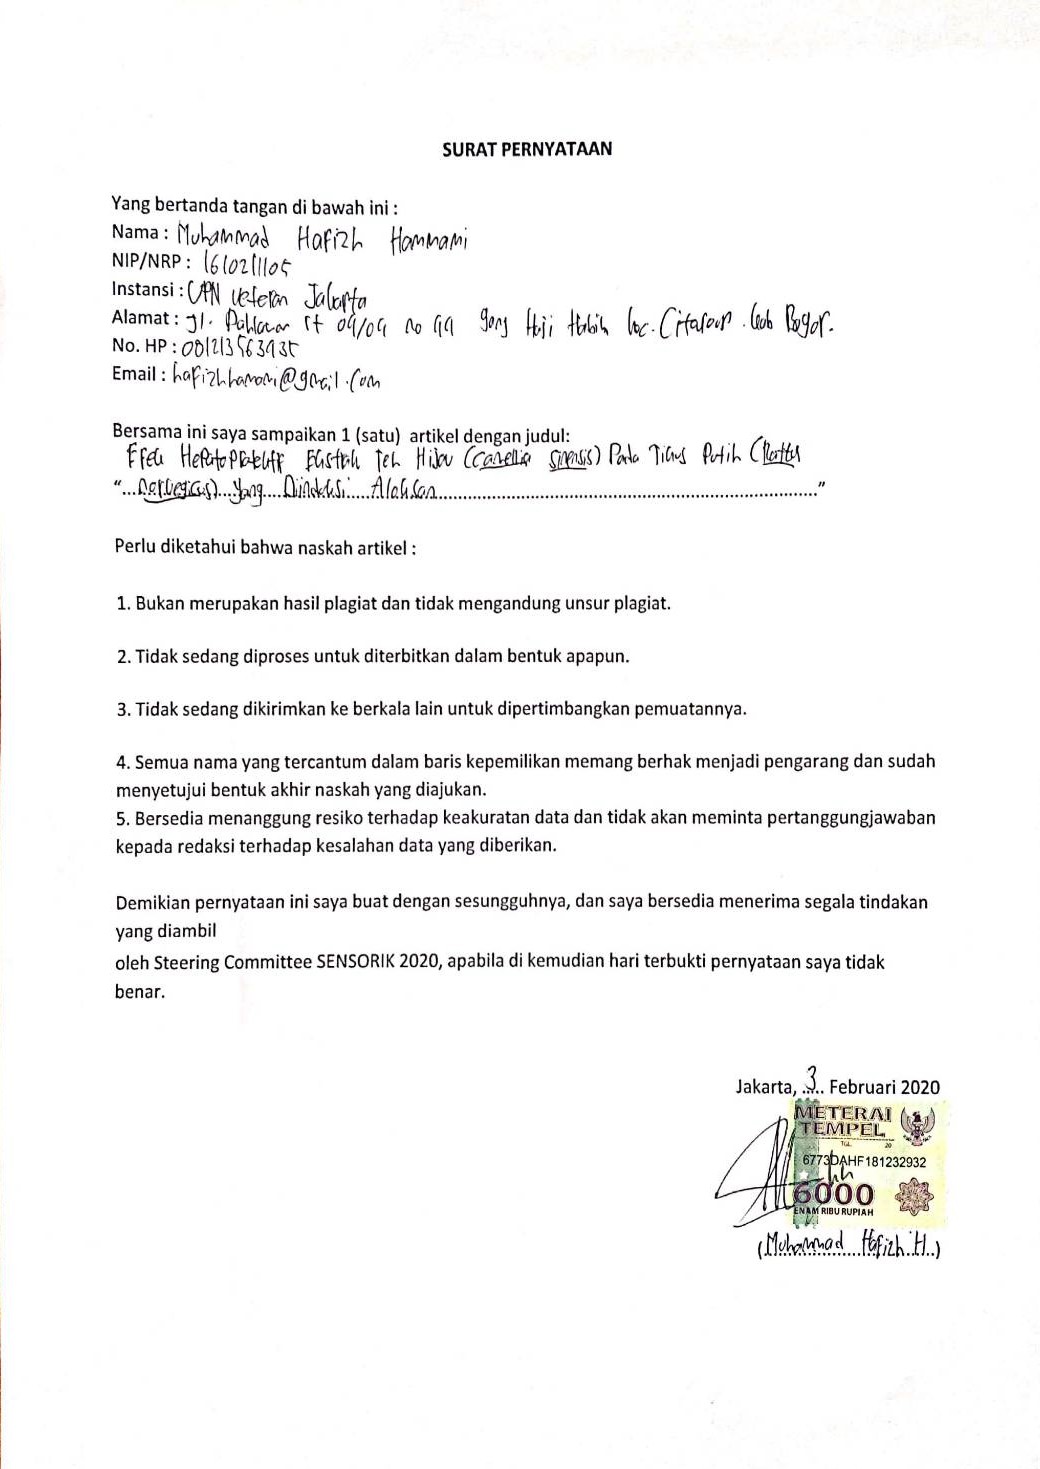 SURAT PERNYATAAN
Yang bertanda tangan di bawah ini :
Nama : Muhammad Hafizh Hammami
NIP/NRP : 1610211105
Instansi : UPN veteran Jakarta
Alamat : Jl. Pahlawan rt 04/04 no 49 gang Haji Habib kec. Citeureup . kab Bogor.
No. HP :
Email :
Bersama ini saya sampaikan 1 (satu) artikel dengan judul:
Efek Hepatoprotektif Ekstrak Teh Hijau (Camellia sinensis) Pada Tikus Putih (Rattus
“... Norvegicus) Yang Diinduksi Alohlan ...”
Perlu diketahui bahwa naskah artikel :
1. Bukan merupakan hasil plagiat dan tidak mengandung unsur plagiat.
2. Tidak sedang diproses untuk diterbitkan dalam bentuk apapun.
3. Tidak sedang dikirimkan ke berkala lain untuk dipertimbangkan pemuatannya.
4. Semua nama yang tercantum dalam baris kepemilikan memang berhak menjadi pengarang dan sudah
menyetujui bentuk akhir naskah yang diajukan.
5. Bersedia menanggung resiko terhadap keakuratan data dan tidak akan meminta pertanggungjawaban
kepada redaksi terhadap kesalahan data yang diberikan.
Demikian pernyataan ini saya buat dengan sesungguhnya, dan saya bersedia menerima segala tindakan
yang diambil
oleh Steering Committee SENSORIK 2020, apabila di kemudian hari terbukti pernyataan saya tidak
benar.
Jakarta, .3.. Februari 2020
METERAI
TEMPEL
TGL. 20
6773DAHF181232932
6000
ENAM RIBU RUPIAH
(Muhammad Hafizh H..)